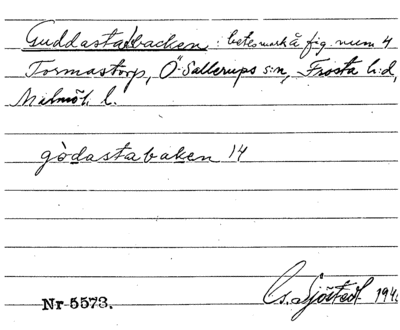 Guddastabacken: betesmark å fig. num 4
Tormastorp, Ö. Sallerups s:n, Frosta h:d,
Malmöh. l.
gòdastabaken 14
Nr 5573. G. Sjöstedt 194